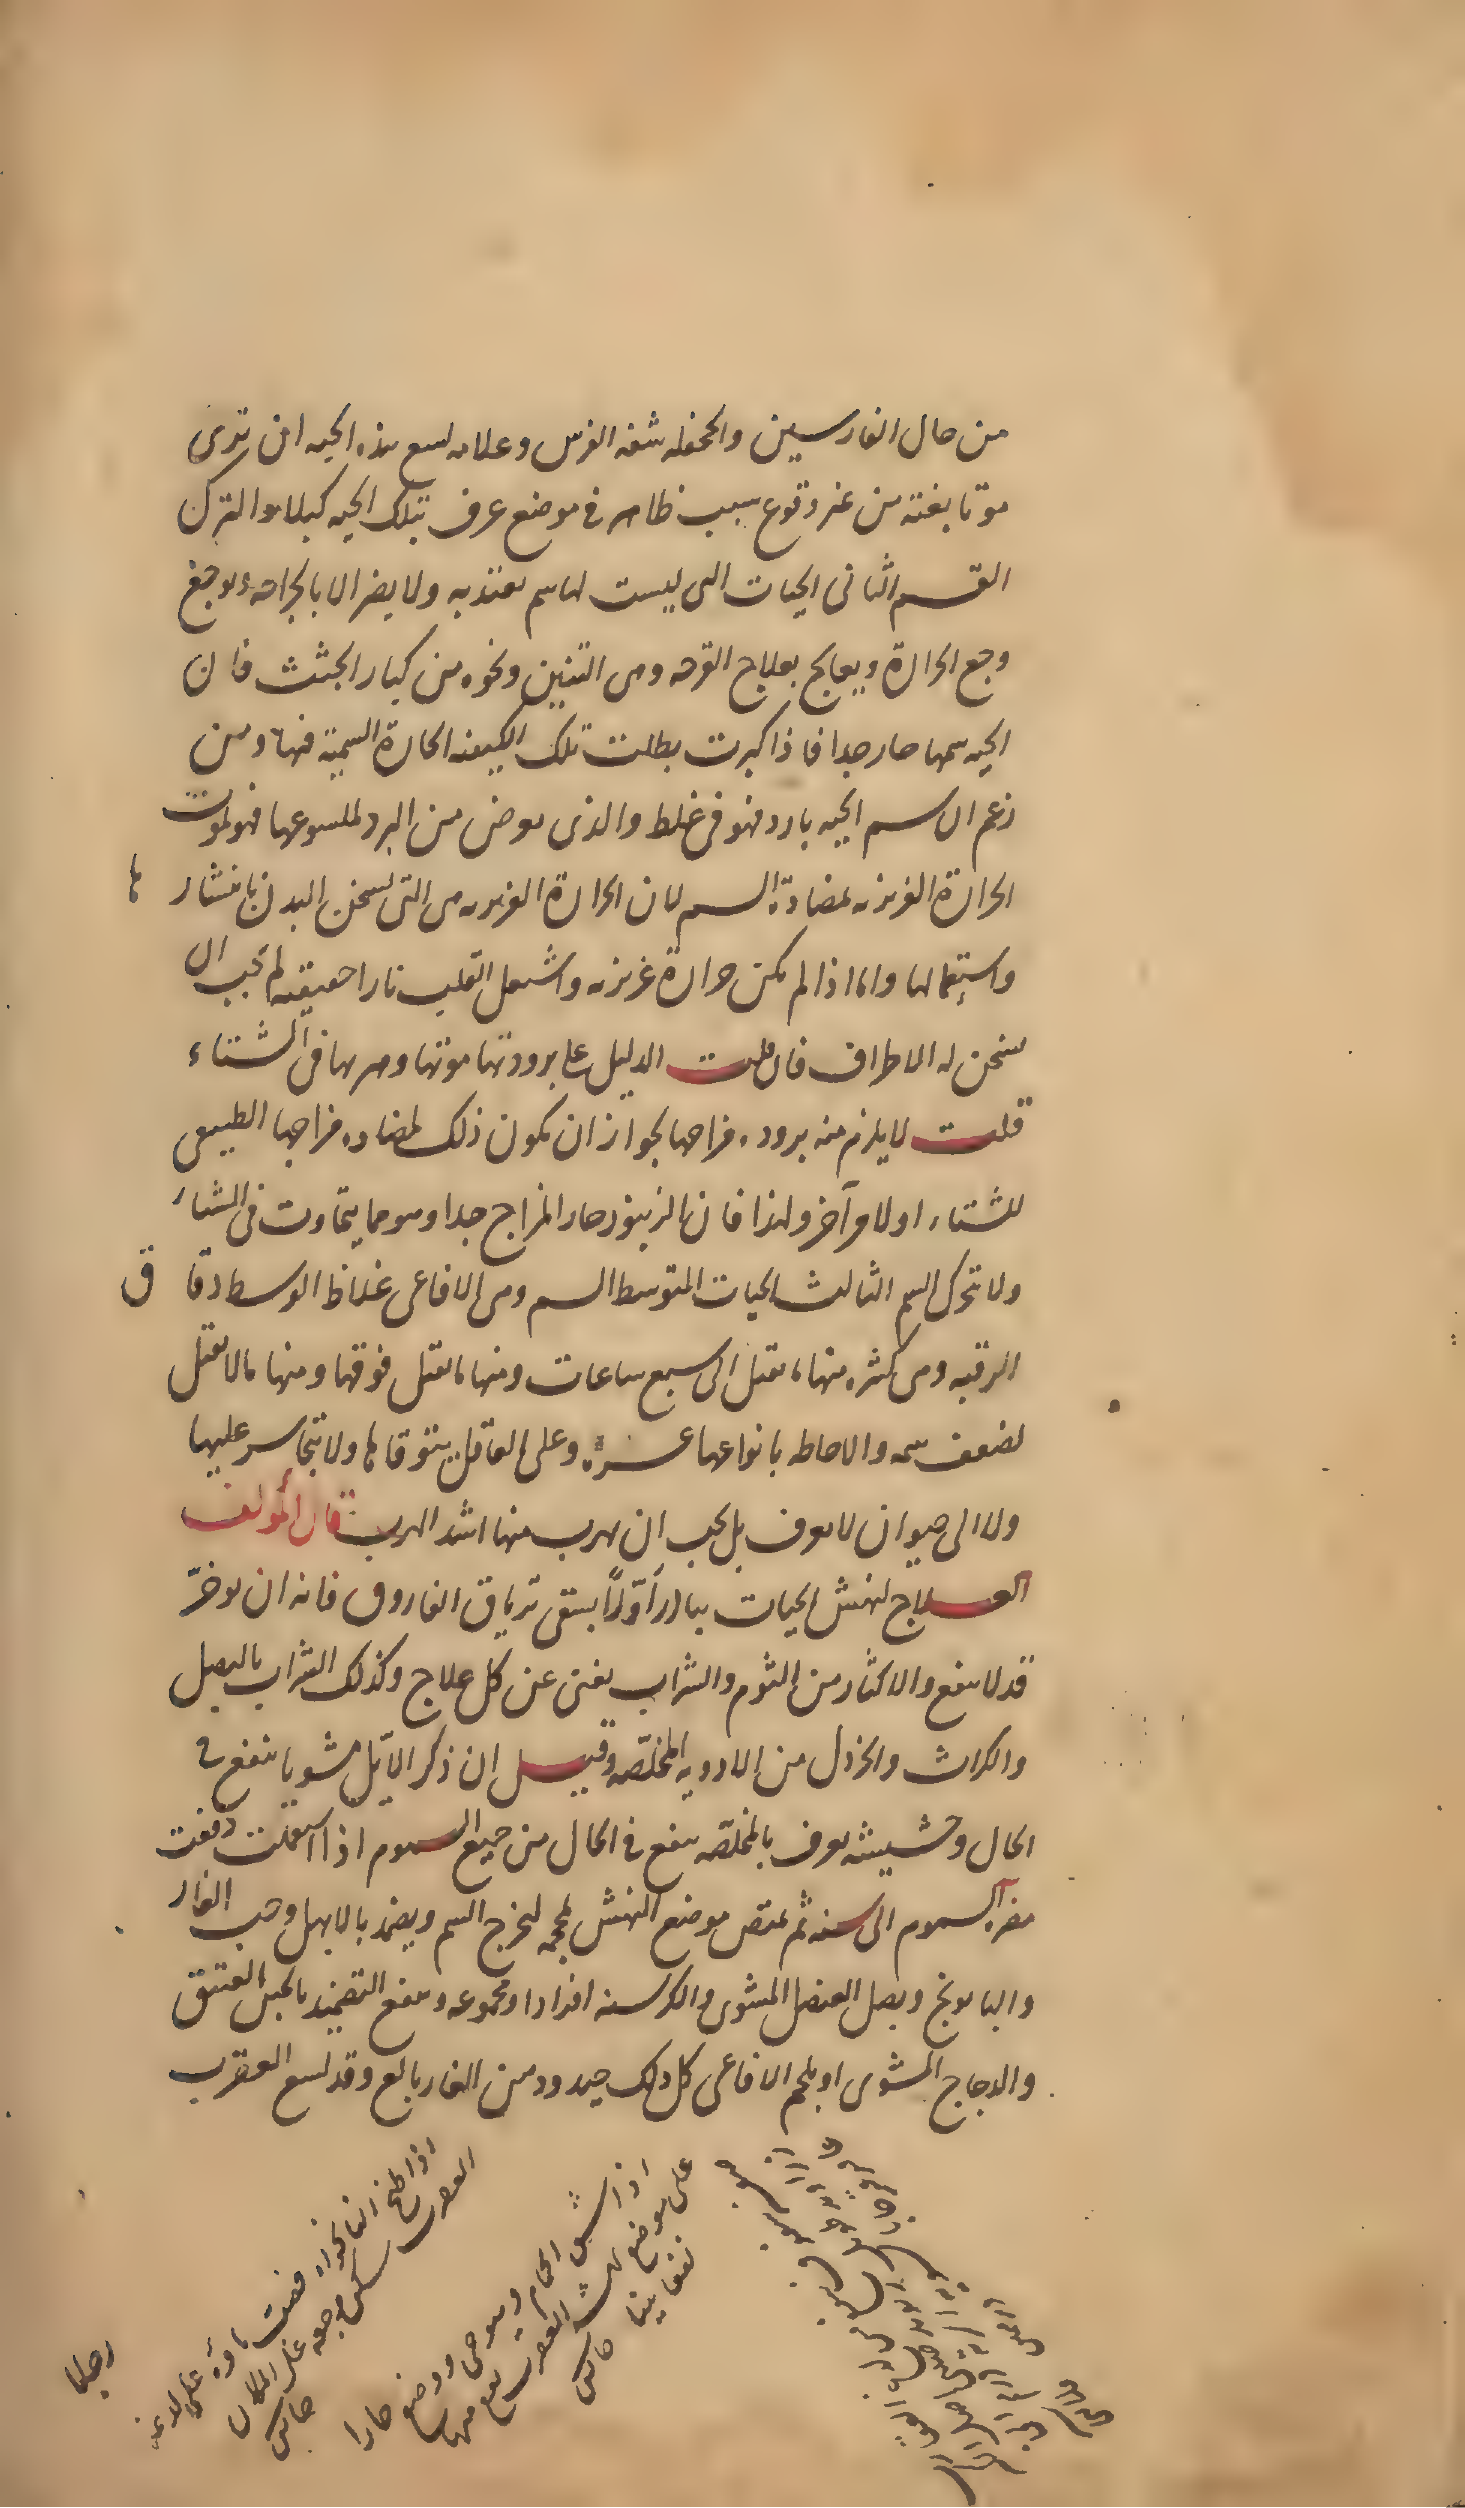 من حال الفارسين والجحفله شفة الفرس وعلامه لسع هذه الحيه ان ترى
موتا بغتة من غير وقوع سبب ظاهر في موضع عرف بتلك الحيه كبلاد الترك
القسم الثانى الحيات التى ليست لها سم يعتد به ولا يضر الا بالجراحة ووجع
وجع الحرارة ويعالج بعلاج القرحه وهى التنين ونحوه من كبار الجثث فان
الحيه سمها حار جدا فاذا كبرت بطلت تلك الكيفية الحارة السمية فيها ومن
زعم ان سم الحيه بارد فهو في غلط والذى يعرض من البرد لملسوعها فهو لموت
الحرارة الغريزيه لمضادة السم لان الحرارة الغريزيه هى التى تسخن البدن بانتشار ها
واستعمالها واما اذا لم يكن حرارة غريزيه واشتعل القلب نارا حقيقيه لم يجب ان
يسخن له الاطراف فان قلت الدليل على برودتها موتها وهربها فى الشتاء
قلت لا يلزم منه بروده مزاجها لجواز ان يكون ذلك لمضاده مزاجها الطبيعى
للشتاء اولامر آخر ولهذا فان الزنبور حار المزاج جدا وهو مما يتماوت فى الشتاء
ولا تحرك السم الثالث الحيات المتوسط السم وهى الافاعى غلاظ الوسط دقا ق
الرقبه وهى كثره منها ما يقتل الى سبع ساعات ومنها ما يقتل فوقها ومنها ما لا يقتل
لضعف سمه والاحاطه بانواعها عسرة وعلى العاقل يتوقاها ولا يتجاسر عليها
ولا الى حيوان لا يعرف بل يجب ان يهرب منها اشد الهرب قال المؤلف
العلاج لنهش الحيات يبادر اولا بسقى ترياق الفاروق فانه ان يوخر
قد لا ينفع والاكثار من الثوم والشراب يغنى عن كل علاج وكذلك الشراب بالبصل
والكراث والخردل من الادويه المخلصه وقيل ان ذكر الايل مشويا ينفع في
الحال وحشيشه يعرف بالمخلصه ينفع في الحال من جميع السموم اذا استعملت دفعت
مضره السموم الى سنه ثم يمتص موضع النهش بمحجمه ليخرج السم ويضمد بالابهل وحب الغار
والبابونج وبصل العنصل المشوى والكرسنه افرادا ومجموعه وينفع التضميد بالجبن العتيق
والدجاج المشوى او بلحم الافاعى كل ذلك جيد ودهن الغار بالغ وقد لسع العقرب
اذا شق الحمام وهو حى ووضع حارا
على موضع نهشه العقرب نفع منها
نفعا بينا
اذا طبخ النانخواه وصب ماؤه على لدغة
العقرب سكن وجعه على المكان